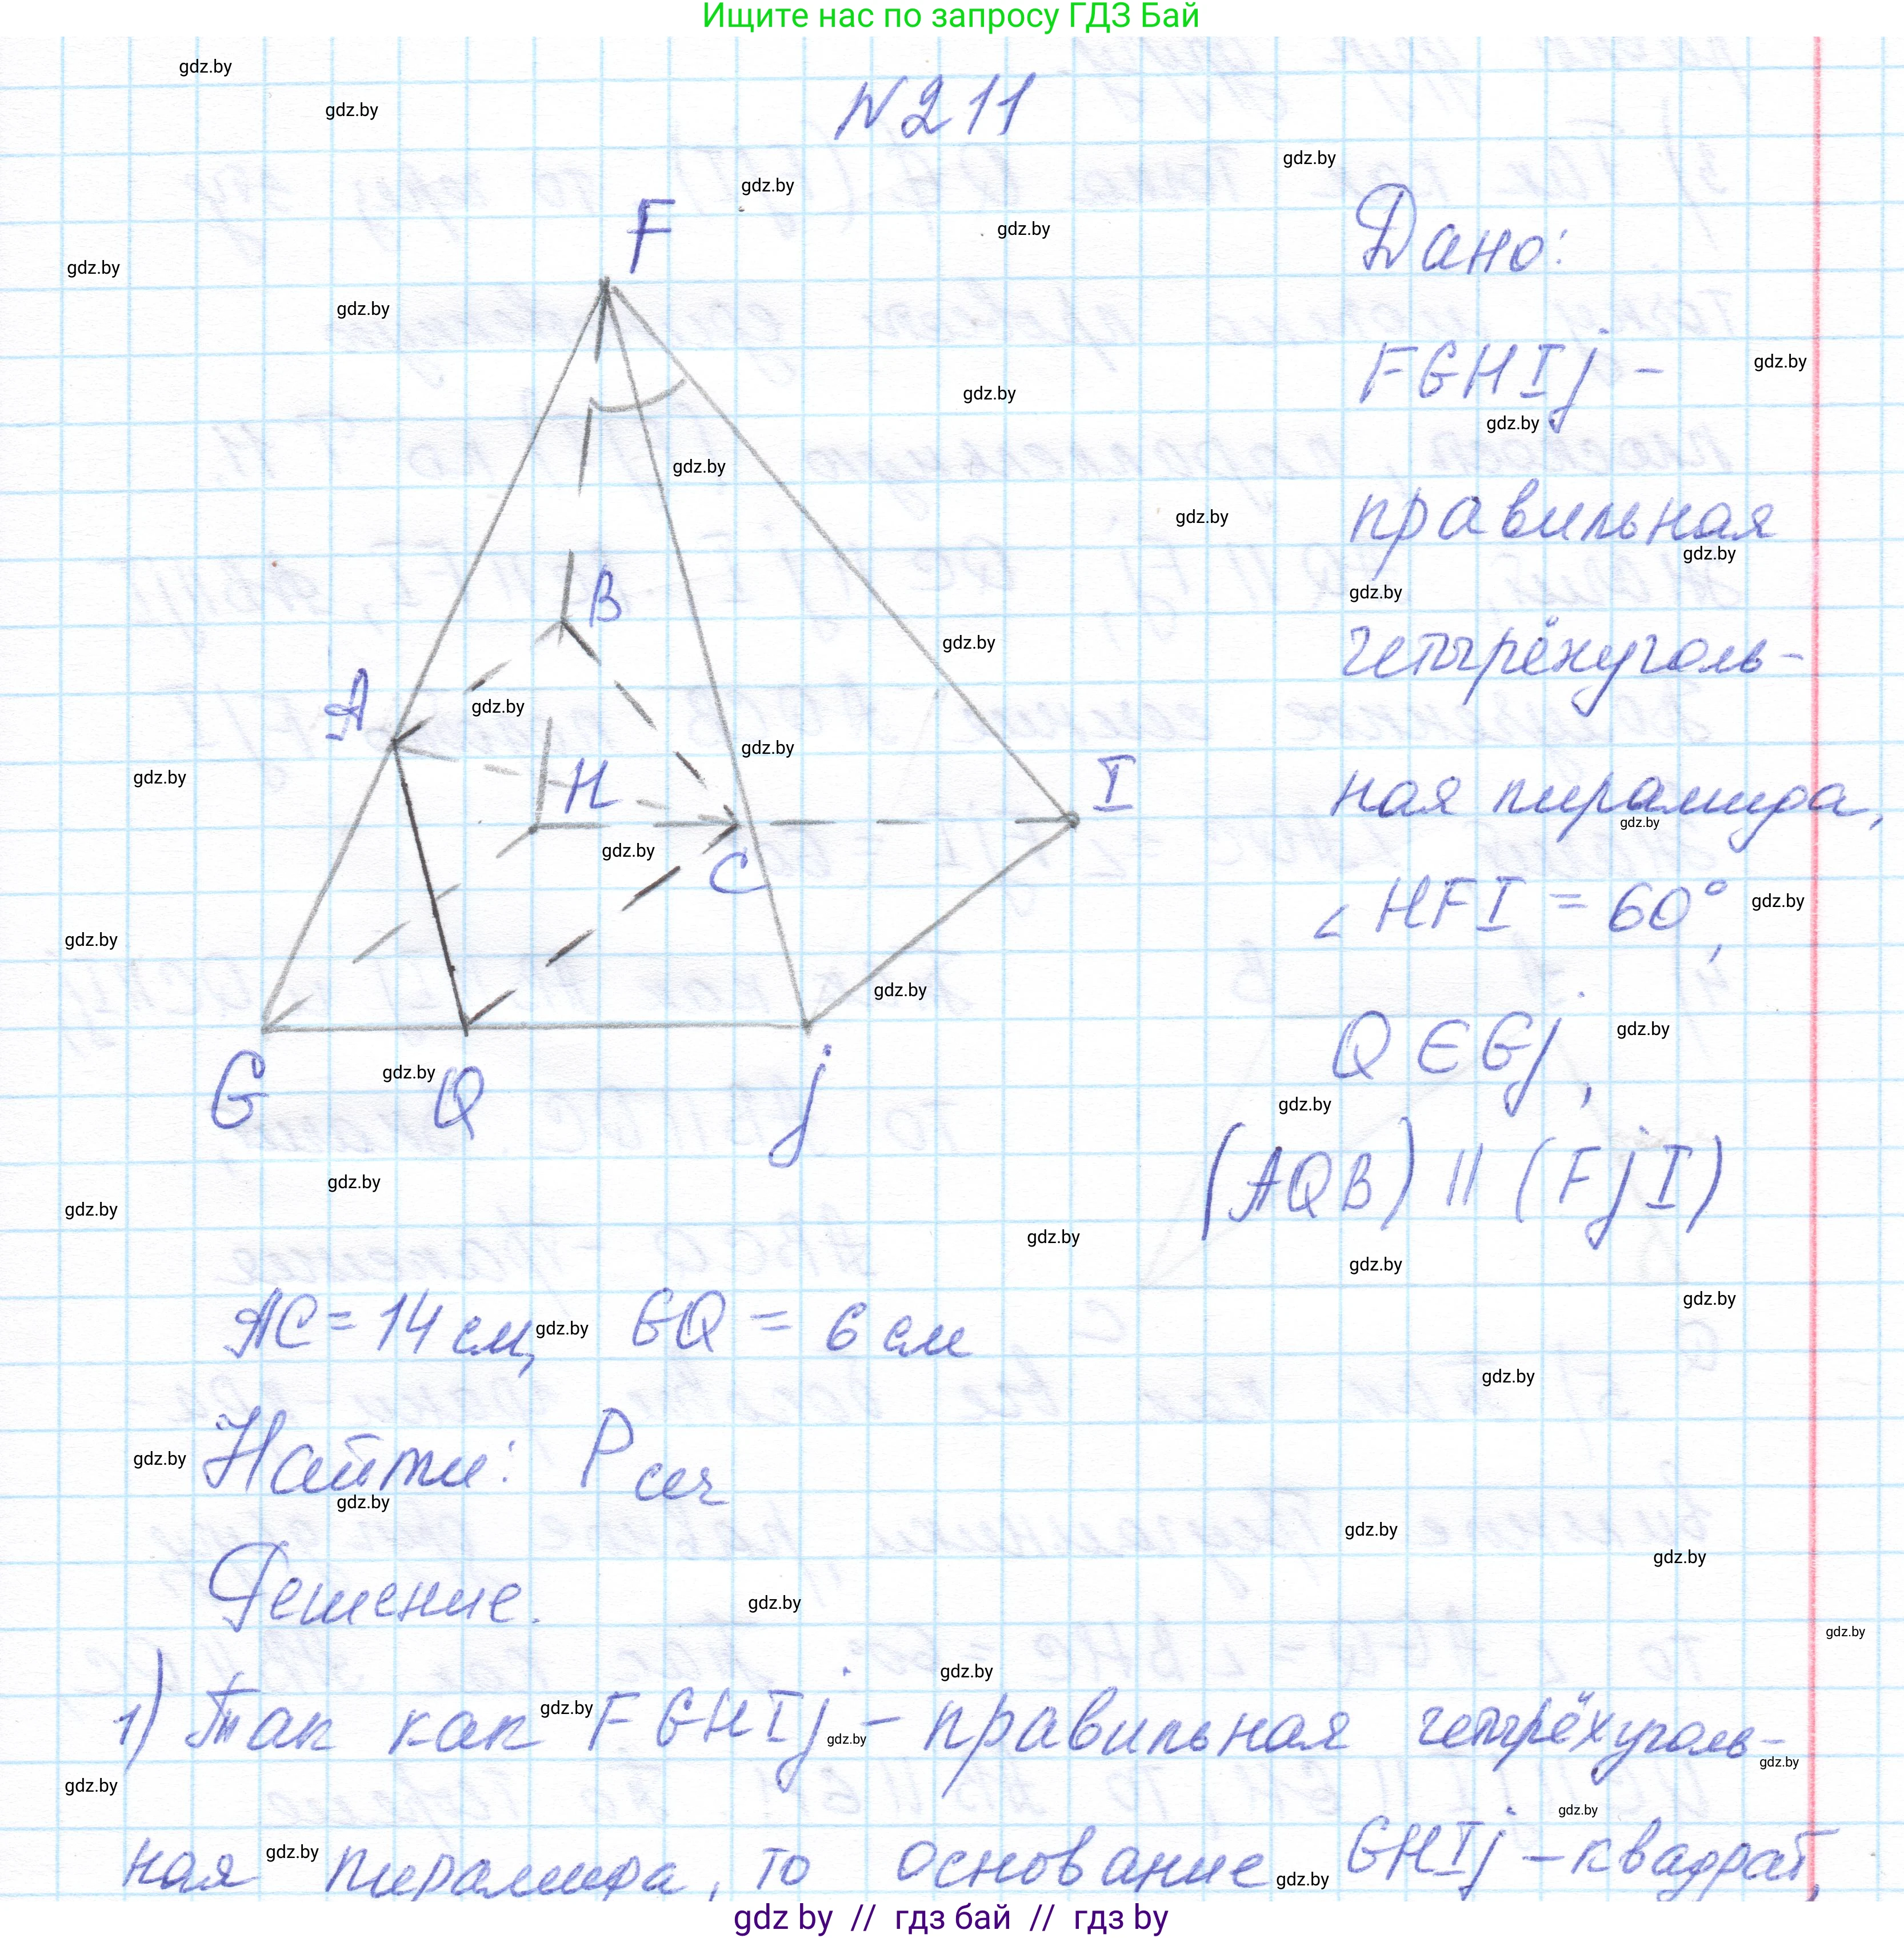 Ищите нас по запросу ГДЗ Бай
N 211
F
B
A
H
I
C
G
Q
j
Дано:
FGHIj -
правильная
четырёхуголь-
ная пирамида,
∠ HFI = 60°,
Q ∈ Gj,
(AQB) || (FjI)
AC = 14 см, GQ = 6 см
Найти: Pсеч
Решение.
1) Так как FGHIj - правильная четырёхуголь-
ная пирамида, то основание GHIj - квадрат,
gdz by // гдз бай // гдз by
gdz.by